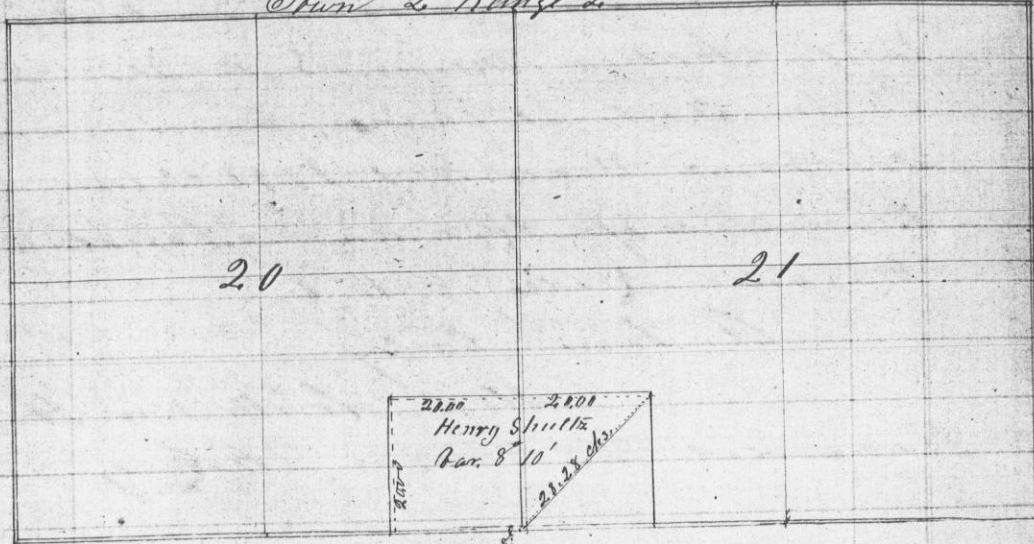 Town 2 Range 2
20
21
20.00 20.00
Henry Shultz
Var. 8° 10'
20.00
28.28 chs.